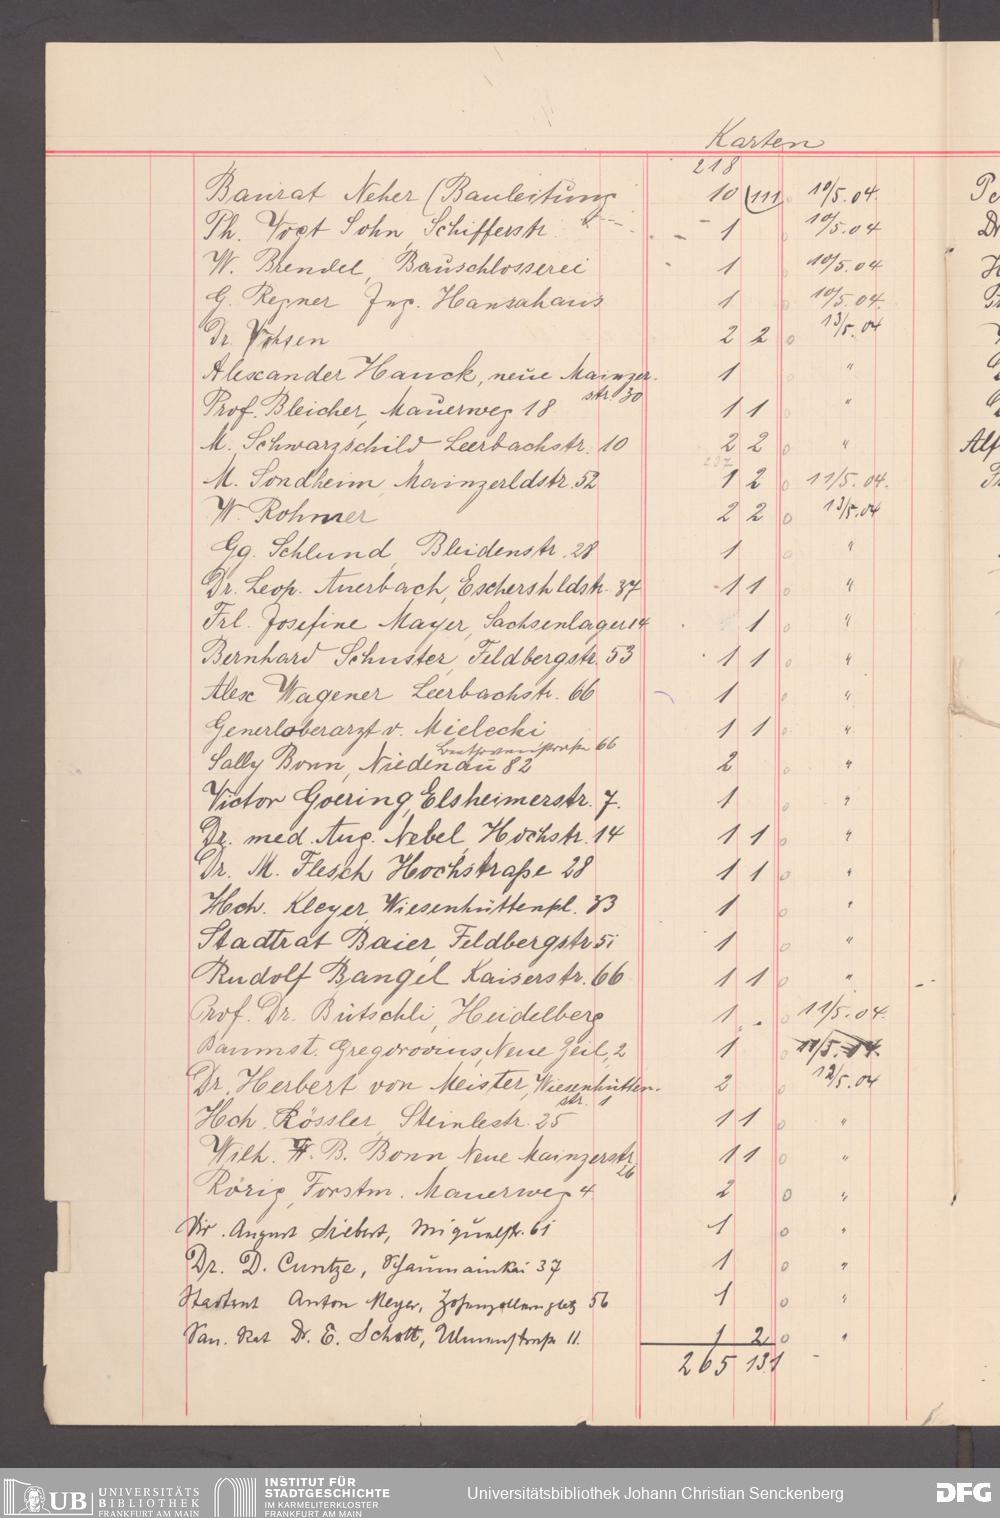 Karten
218
Baurat Neher (Bauleitung 10 (111 10/5. 04.
Ph. Vogt Sohn, Schifferstr. 1 10/5. 04
W. Brendel, Bauschlosserei 1 10/5. 04
G. Regner Ing. Hansahaus 1 10/5. 04.
Dr. Vohsen 2 2 0 13/5. 04
Alexander Hauck, neue Mainzer- 1 "
str. 30
Prof. Bleicher, Mauerweg 18 1 1 0 "
M. Schwarzschild Leerbachstr. 10 2 2 0 "
237
M. Sondheim, Mainzerldstr. 52 1 2 0 11/5. 04.
W. Rohmer 2 2 0 13/5. 04
Gg. Schlund, Bleidenstr. 28 1 0 "
Dr. Leop. Auerbach, Eschershldstr. 37 1 1 0 "
Frl. Josefine Mayer, Sachsenlager 14 1 0 "
Bernhard Schuster, Feldbergstr. 53 1 1 0 "
Alex Wagener Leerbachstr. 66 1 0 "
Generloberarzt v. Mielecki 1 1 0 "
Beethovenstraße 66
Sally Bonn, Niedenau 82 2 0 "
Victor Goering, Elsheimerstr. 7. 1 0 "
Dr. med. Aug. Nebel, Hochstr. 14 1 1 0 "
Dr. M. Flesch Hochstraße 28 1 1 0 "
Hch. Kleyer, Wiesenhüttenpl. 33 1 0 "
Stadtrat Baier, Feldbergstr 51 1 0 "
Rudolf Bangel Kaiserstr. 66 1 1 0 "
Prof. Dr. Bütschli, Heidelberg 1 0 11/5. 04.
Baumst. Gregorovius, Neue Zeil, 2 1 0 11/5. 14.
Dr. Herbert von Meister, Wiesenhütten- 2 0 12/5. 04
str. 1
Hch. Rössler, Steinlestr. 25 1 1 0 "
Wilh. W. B. Bonn Neue Mainzerstr 1 1 0 "
26
Rörig, Forstm. Mauerweg 4 2 0 "
Dir. August Siebert, Miquelstr. 61 1 0 "
Dr. D. Cuntze, Schaumainkai 37 1 0 "
Stadtrat Anton Meyer, Hohenzollernplatz 56 1 0 "
San. Rat Dr. E. Schott, Ulmenstraße 11. 1 2 0 "
265 131
Dr
Alf
UB UNIVERSITÄTS
BIBLIOTHEK
FRANKFURT AM MAIN
INSTITUT FÜR
STADTGESCHICHTE
IM KARMELITERKLOSTER
FRANKFURT AM MAIN
Universitätsbibliothek Johann Christian Senckenberg
DFG